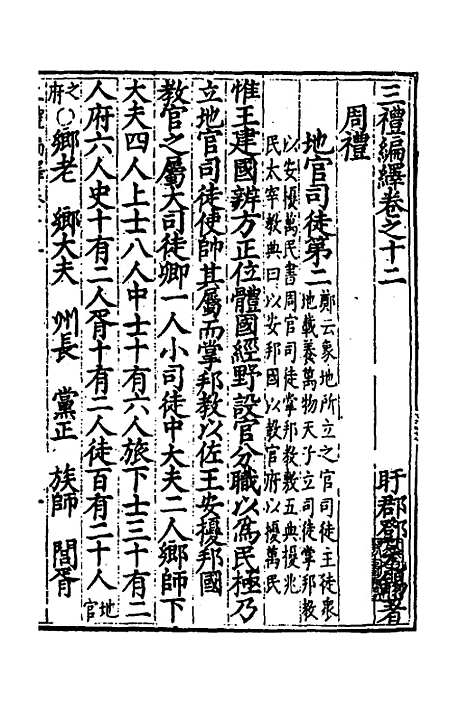 三禮編繹卷之十二
盱郡鄧元錫著
周禮
地官司徒第二
鄭云象地所立之官司徒主徒衆
地載養萬物天子立司徒掌邦教
以安擾萬民書周官司徒掌邦教敷五典擾兆
民太宰教典曰以安邦國以教官府以擾萬民
惟王建國辨方正位體國經野設官分職以爲民極乃
立地官司徒使帥其屬而掌邦教以佐王安擾邦國
教官之屬大司徒卿一人小司徒中大夫二人鄉師下
大夫四人上士八人中士十有六人旅下士三十有二
人府六人史十有二人胥十有二人徒百有二十人
地
官
之
府
○鄉老 鄉大夫 州長 黨正 族師 閭胥